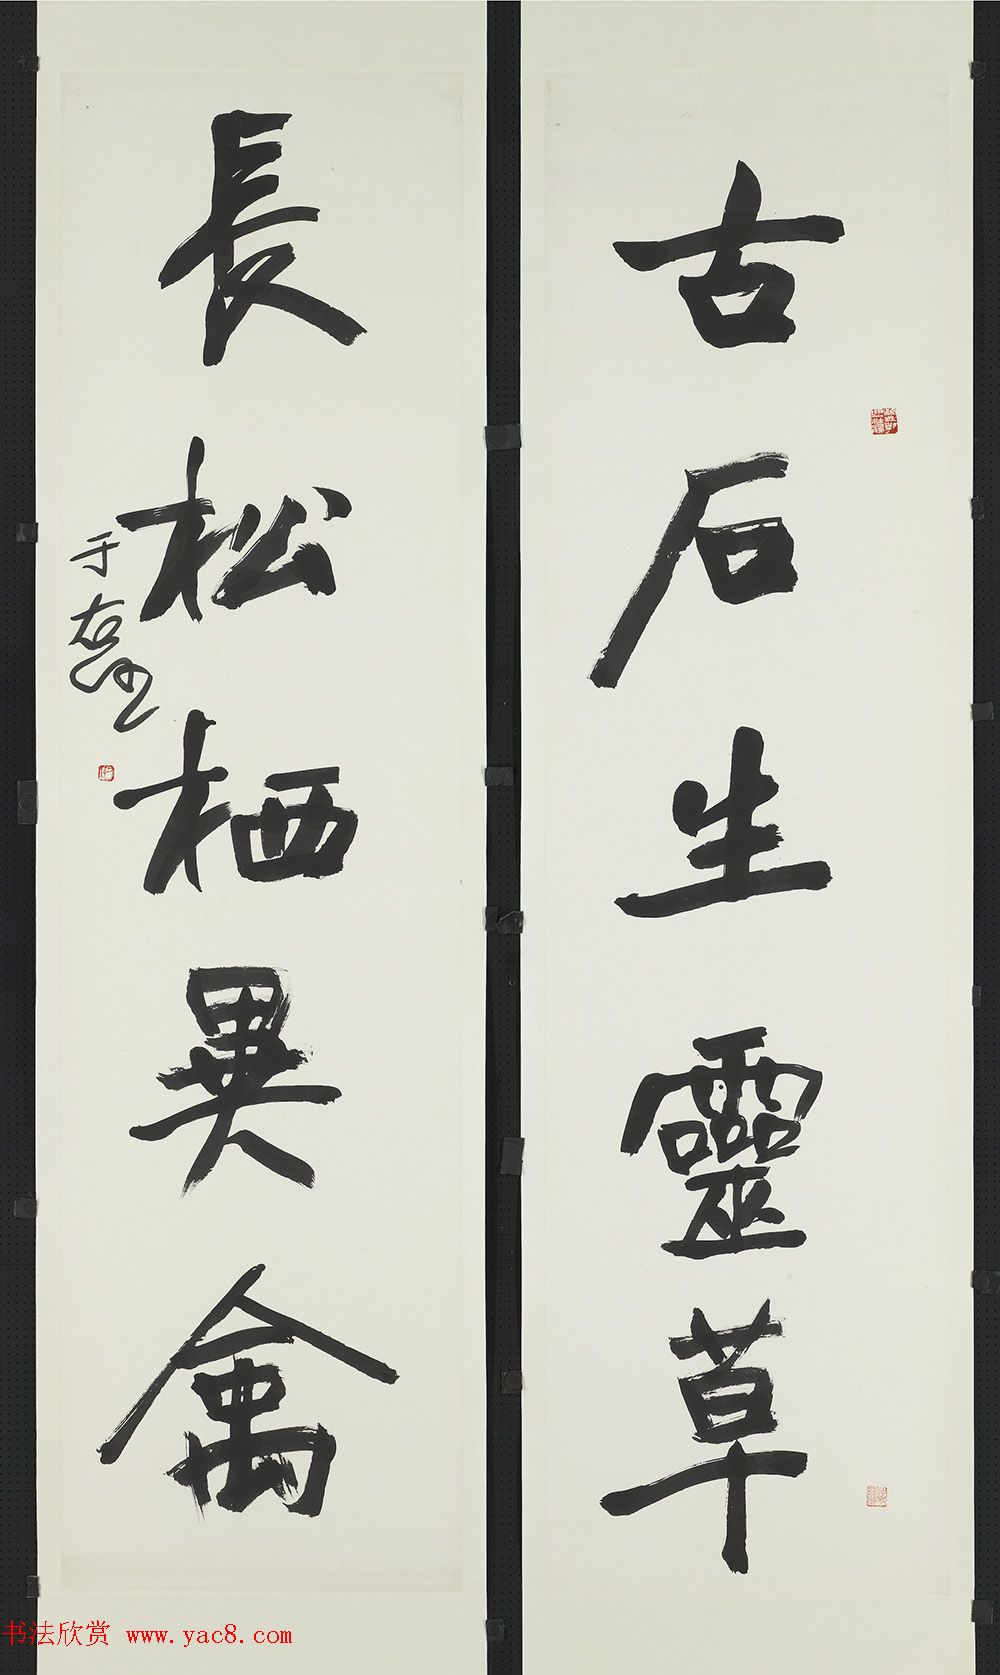 古石生靈草
長松栖異禽
于右任
书法欣赏 www.yac8.com